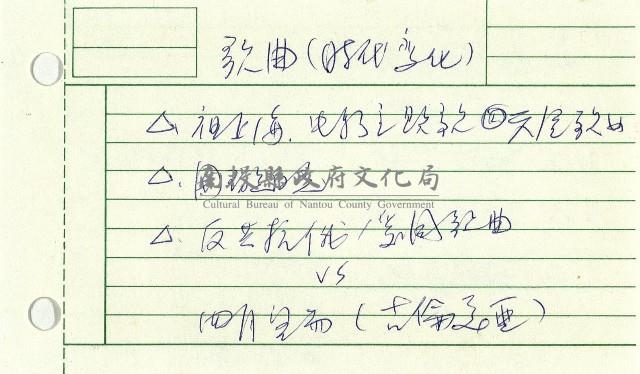 歌曲(时代变化)
△. 祖上海. 电影主題歌 天涯歌女
△.
南投縣政府文化局
Cultural Bureau of Nantou County Government
△. 反共抗俄/愛国歌曲
VS
四月望雨 (吉倫美亜)